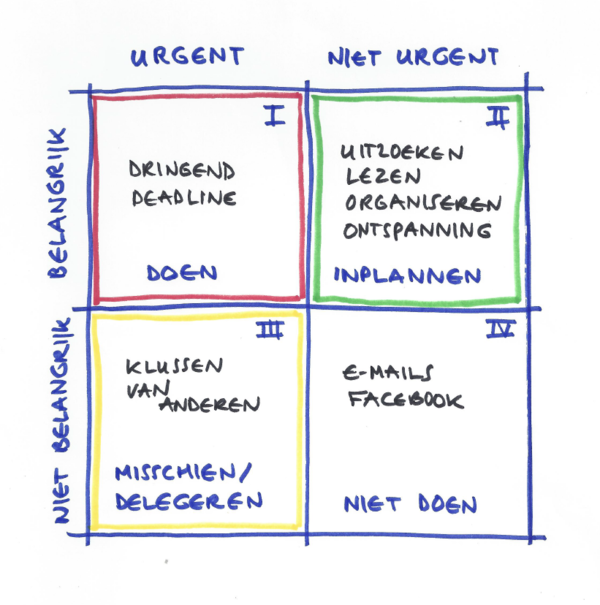 URGENT
NIET URGENT
BELANGRIJK
I
DRINGEND
DEADLINE
DOEN
II
UITZOEKEN
LEZEN
ORGANISEREN
ONTSPANNING
INPLANNEN
NIET BELANGRIJK
III
KLUSSEN
VAN
ANDEREN
MISSCHIEN/
DELEGEREN
IV
E-MAILS
FACEBOOK
NIET DOEN